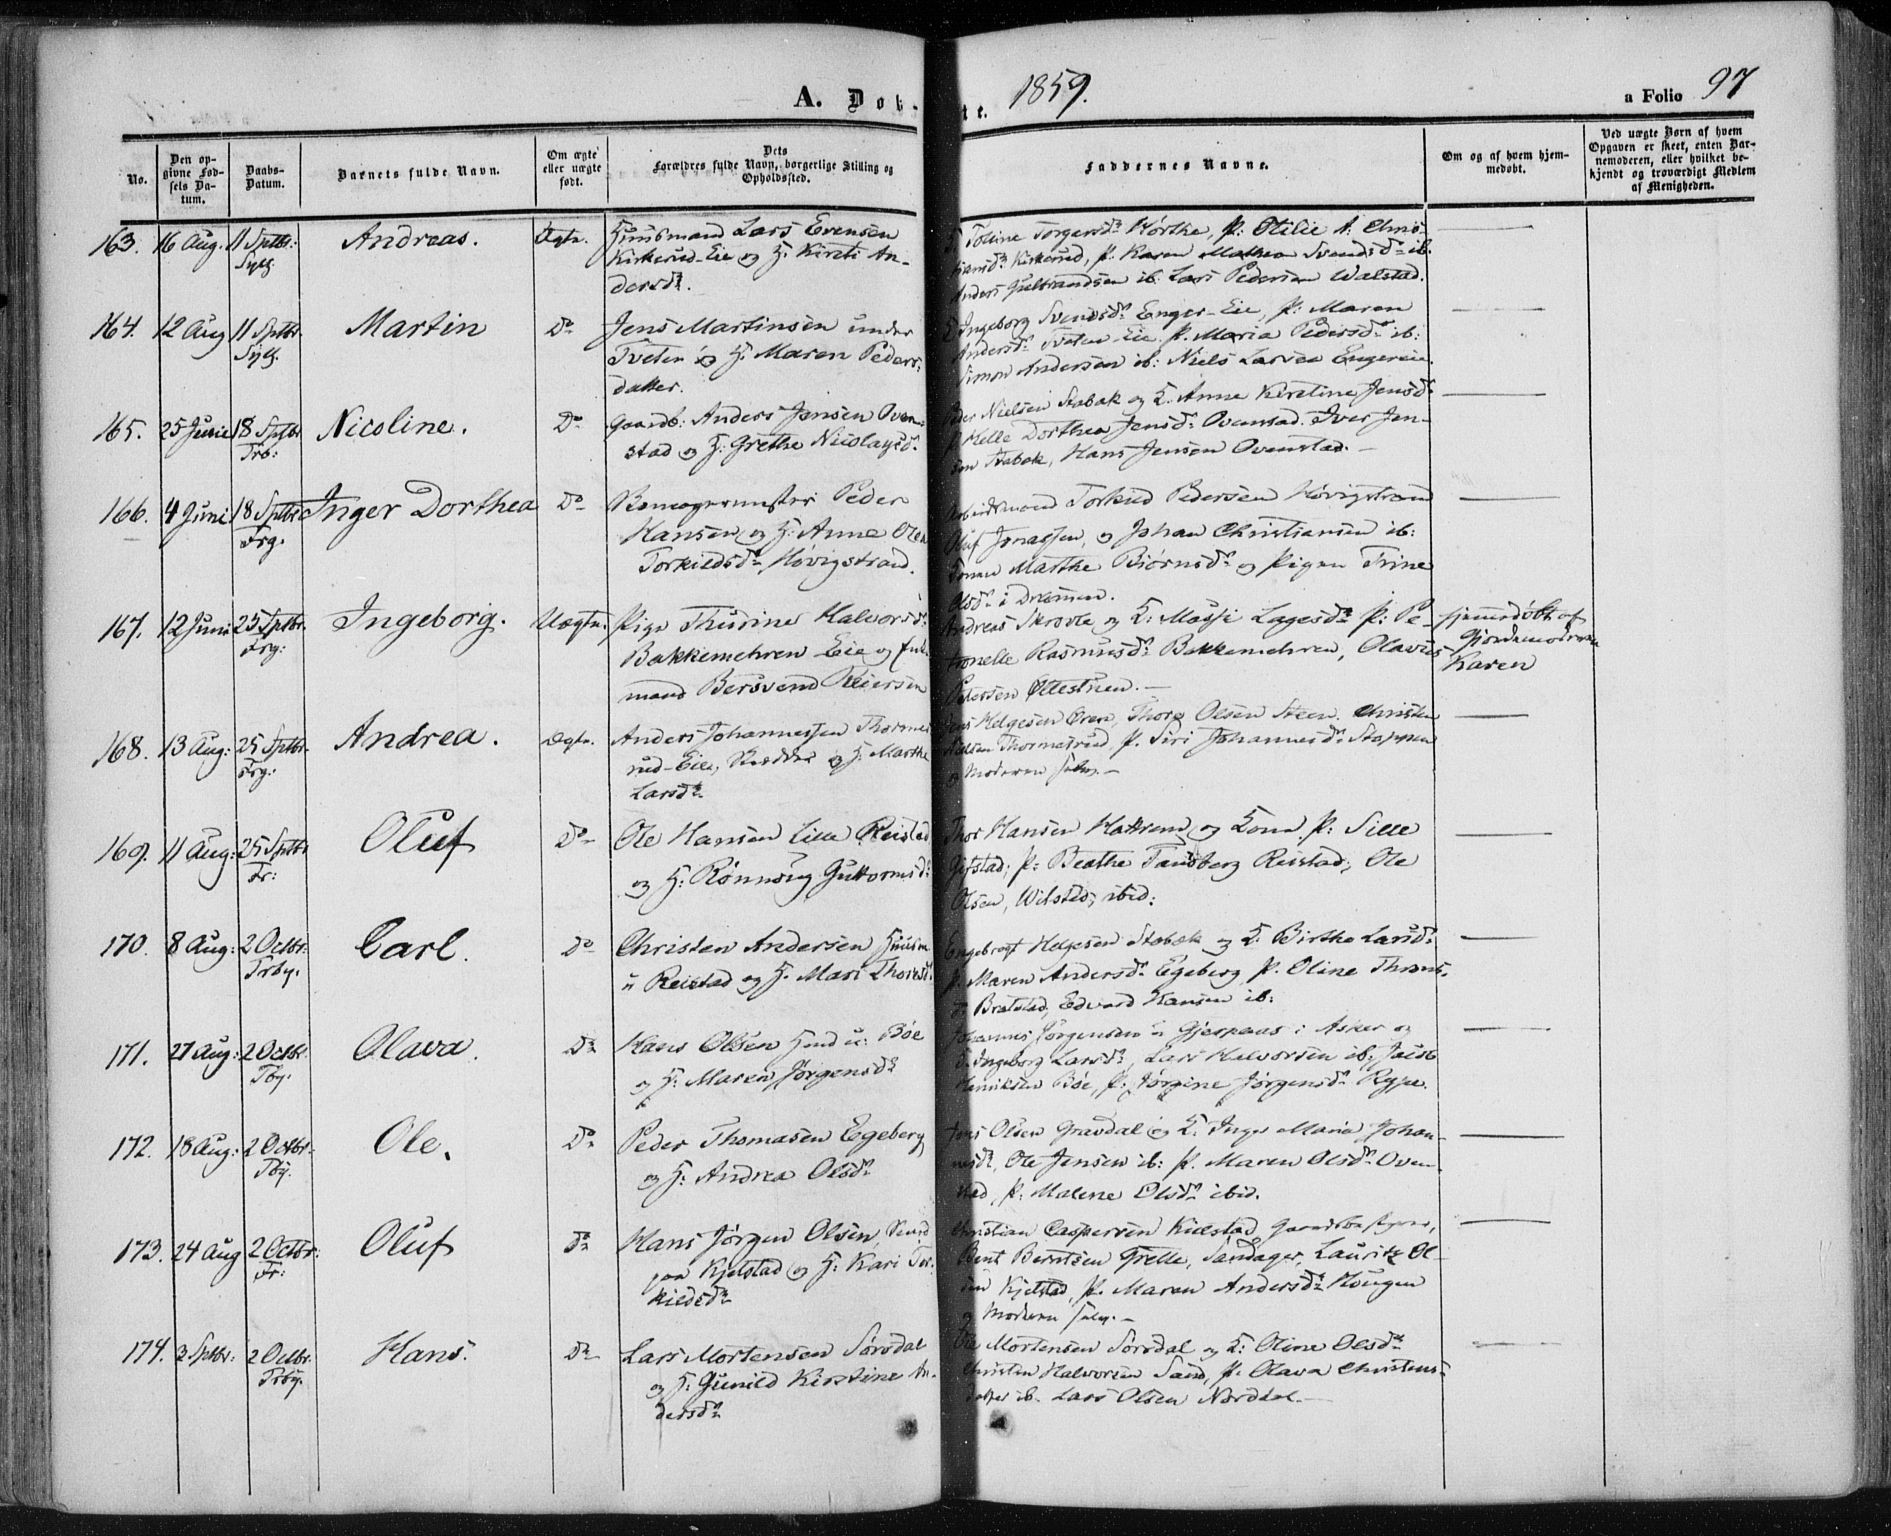 A. Døb-te. 1859. a Folio 97
No.
Den opgivne Fødsels Datum.
Daabs-Datum.
Barnets fulde Navn.
Om ægte eller uægte født.
Dets Forældres fulde Navn, borgerlige Stilling og Opholdssted.
Faddernes Navne.
Om og af hvem hjemmedøbt.
Ved uægte Børn af hvem Opgaven er skeet, enten Barnemoderen, eller hvilket bekjendt og troværdigt Medlem af Menigheden.
163. 16 Aug. 11 Sptbr: Sylg. Andreas. Ægte.
Huusmand Lars Evensen
Kirkerud-Eie og H. Kirsti An-
dersdr.
Torgersdr Hørthe, P. Otilie A. Chris-
tiansdr Kirkerud, P. Karen Mathea Svendsdr ib.
Anders Gulbrandsen ib. Lars Pedersen Walstad.
164. 12 Aug 11 Sptbr Sylg. Martin Do
Jens Martinsen under
Tveten og H. Maren Peders-
datter.
Ingeborg Svendsdr Enger-Eie, P. Maren
Andersdr Tveten Eie. P. Maria Pedersdr ib:
Simon Andersen ib: Niels Larsen Engereie
165. 25 Junie 18 Sptbr Trb: Nicoline. Do
Gaardb: Anders Jensen Oven-
stad og H: Grethe Nicolaysdr.
Peder Nielsen Stabæk og K. Anne Kirstine Jensdr
P. Helle Dorthea Jensdr Ovenstad. Iver Jen-
sen Stabæk, Hans Jensen Ovenstad.—
166. 4 Juni 18 Sptbr Frg. Inger Dorthea Do
Peder
Hansen og H: Anne Olea
Torkildsdr Høvigstrand.
Arbeidsmand Torkild Pedersen Høvigstrand
Oluf Jonassen, og Johan Christiansen ib:
Konen Marthe Biørnsdr og Pigen Trine
Olsdr i Drammen.
167. 12 Juni 25 Sptbr. Frg: Ingeborg. Uægte.
Pige Thurine Halvorsdr.
Bakkemehren Eie og Enk-
mand Bersvend Reiersen
Andreas Skrovte og K: Masje Lagesdr P: Pe-
tronelle Rasmusdr Bakkemehren, Olavus
Petersen Ottestuen.—
hjemmedøbt af
Gjordemoderen
Karen
168. 13 Aug: 25 Sptbr. Frg: Andrea. Ægte.
Anders Johannessen Thormes
rud-Eie, og H: Marthe
Larsdr
Jens Helgesen Øren, Thore Olsen Steen. Christen
Nielsen Thormesrud, P. Siri Johannesdr Stoppen
og Moderen selv.—
169. 11 Aug: 25 Sptbr Fr: Oluf Do
Ole Hansen Lille Reistad
og H: Rønnoug Guttormsdr:
Thor Hansen Hattrem og Kone P: Sille
Gjetstad; P: Beathe Tandberg Reistad; Ole
Olsen, Wilstad, ibid:
170. 8 Aug: 2 Octbr: Trby. Carl. Do
Christen Andersen Huusm
u Reistad og H. Mari Thoresdr.
Engebregt Helgesen Stabæk og K. Birthe Larsdr.
P. Maren Andersdr Egeberg P. Oline Thoms-
dr Bratstad, Edvard Hansen ib:
171. 27 Aug: 2 Octbr. Tby. Olava. Do
Hans Olsen Hmd u: Bøe
og H: Maren Jørgensdr
Johannes Jørgensen u Gjespaas i Asker og
K. Ingeborg Larsdr, Lars Halvorsen ib, Jacob
Henriksen Bøe, P: Jørgine Jørgensdr Rype.
172. 18 Aug: 2 Octbr. Tby. Ole. Do
Peder Thomasen Egeberg
og H: Andrea Olsdr
Jens Olsen Gravdal og K. Inger Maria Johan-
nesdr, Ole Jensen ib: P. Maren Olsdr Oven-
stad, P: Malene Olsdr ibid.
173. 24 Aug 2 Octbr: Fr: Oluf Do
Hans Jørgen Olsen, Smed
paa Kjelstad og H: Kari Tor-
kildsdr
Christian Caspersen Kjelstad, Gaardbestyrer,
Bent Berntsen Frelle, Sandager, Lauritz Ol-
sen Kjelstad, P. Maren Andersdr Hougen
og Moderen selv.—
174. 2 Sptbr: 2 Octbr. Trby. Hans. Do
Lars Mortensen Sørsdal
og H: Gunild Kirstine An-
dersdr
Ole Mortensen Sørsdal og K: Oline Olsdr
Christen Halvorsen Sand, P. Olava Christens-
datter ib. Lars Olsen Nordal.—